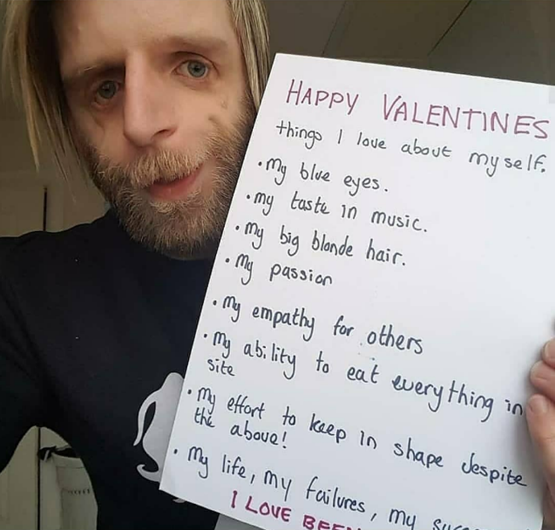 HAPPY VALENTINES
things I love about myself.
• My blue eyes.
• my taste in music.
• My big blonde hair.
• My passion
• My empathy for others
• My ability to eat everything in
site
• My effort to keep in shape despite
the above!
• My life, my failures, my
I LOVE